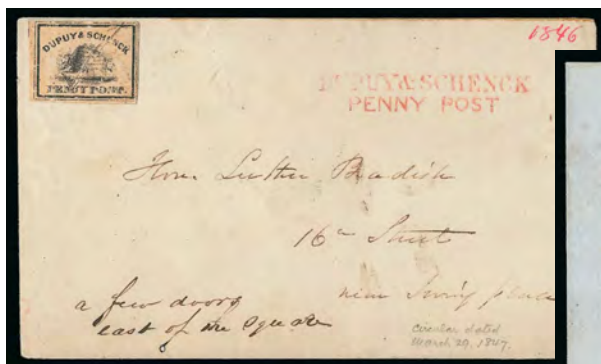 1846
DUPUY & SCHENCK
PENNY POST.
DUPUY & SCHENCK
PENNY POST
Hon. Luther Bradish
16th Street
near Irving place
a few doors
east of the square
circular dated
March 29, 1847.